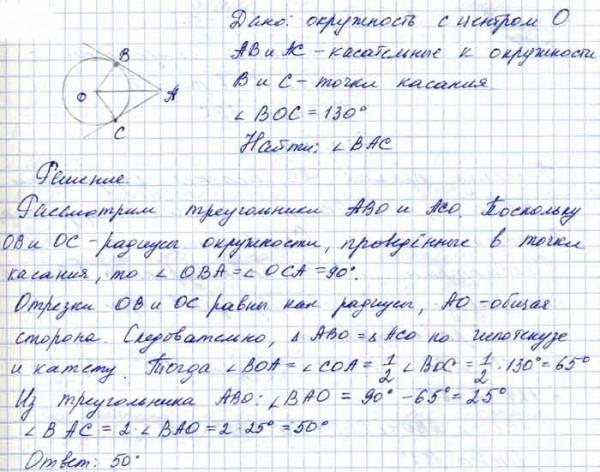 Дано: окружность с центром О
АВ и АС - касательные к окружности
В и С - точки касания
∠ BOC = 130°
Найти: ∠ BAC
B
O
A
C
Решение.
Рассмотрим треугольники АВО и АСО. Поскольку
ОВ и ОС - радиусы окружности, проведённые в точки
касания, то ∠ OBA = ∠ OCA = 90°.
Отрезки ОВ и ОС равны как радиусы, АО - общая
сторона. Следовательно, ▵ ABO = ▵ ACO по гипотенузе
и катету. Тогда ∠BOA = ∠COA = 1/2 ∠BOC = 1/2 · 130° = 65°
Из треугольника АВО: ∠BAO = 90° - 65° = 25°
∠ BAC = 2 · ∠ BAO = 2 · 25° = 50°
Ответ: 50°